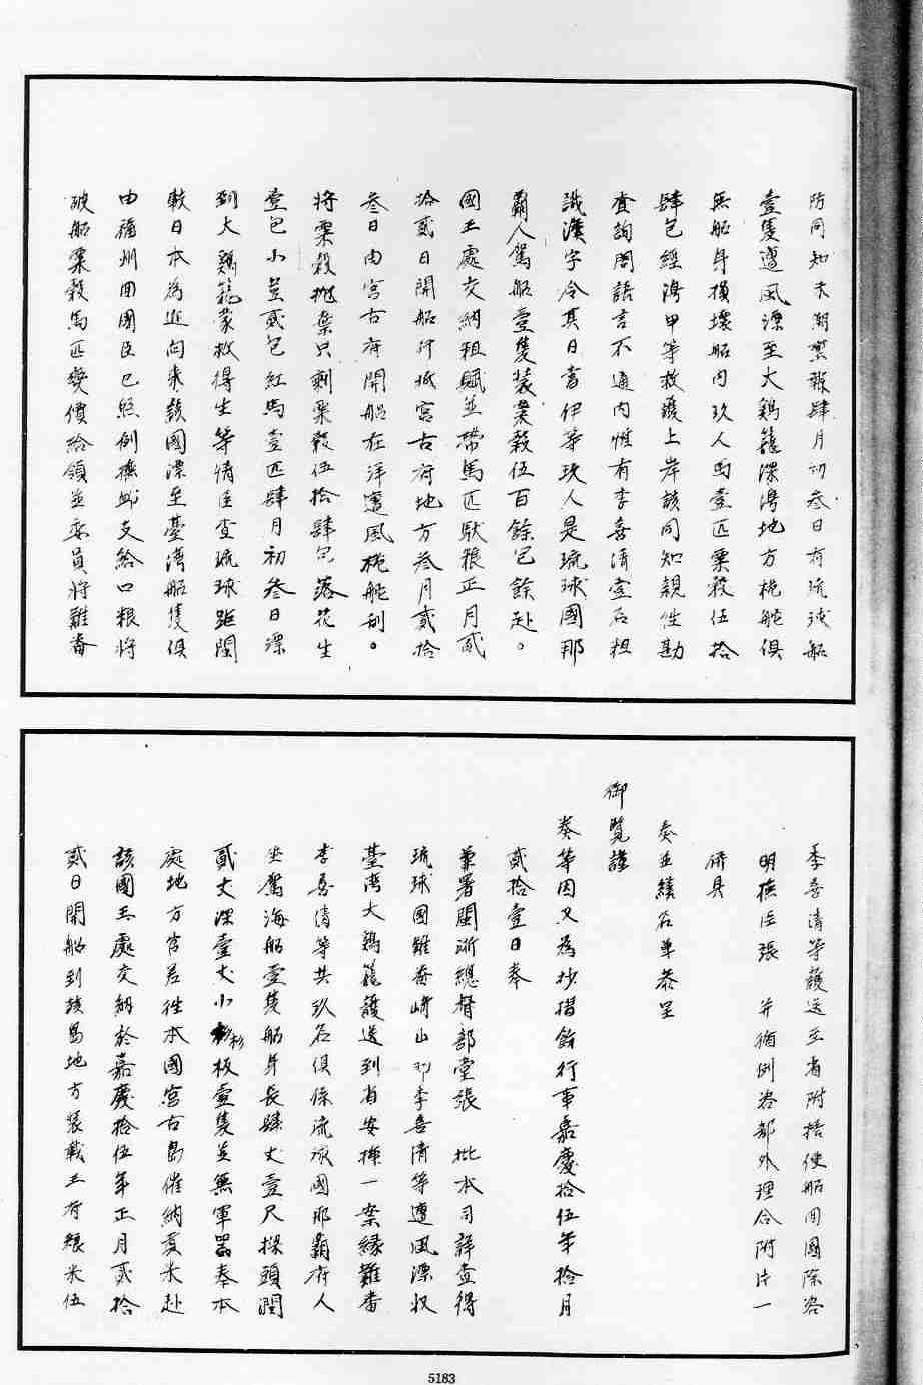 防同知朱朝稟報肆月初叁日有琉球船
壹隻遭風漂至大鷄籠深灣地方桅舵俱
無船身損壞船內玖人馬壹匹粟穀伍拾
肆包經灣甲等救護上岸該同知親往勘
查詢問語言不通內惟有李喜清壹名粗
識漢字令其日書伊等玖人是琉球國那
霸人駕船壹隻裝粟穀伍百餘包餘赴。
國王處交納租賦並帶馬匹馱粮正月貳
拾貳日開船行抵宮古府地方叁月貳拾
叁日由宮古府開船在洋遭風桅舵刮。
將粟穀拋棄只剩粟穀伍拾肆包落花生
壹包小荳貳包紅馬壹匹肆月初叁日漂
到大鷄籠蒙救得生等情臣查琉球距閩
較日本為近向來該國漂至臺灣船隻俱
由福州回國臣已照例撫卹支給口粮將
破船粟穀馬匹變價給領並委員將難番
李喜清等護送至省附搭便船回國除咨
明撫臣張 并循例咨部外理合附片一
併具
奏並繕名单恭呈
御覽謹
奏等因又為抄摺飭行事嘉慶拾伍年拾月
貳拾壹日奉
兼署閩浙總督部堂張 批本司詳查得
琉球國難番﨑山邓李喜清等遭風漂収
臺灣大鷄籠護送到省安揷一案緣難番
李喜清等共玖名俱係流求國那霸府人
坐駕海船壹隻船身長肆丈壹尺樑頭濶
貳丈深壹丈小杉板壹隻並無軍器奉本
處地方官差往本國宮古島催納夏米赴
該國王處交納於嘉慶拾伍年正月貳拾
貳日開船到該島地方裝載王府粮米伍
5183